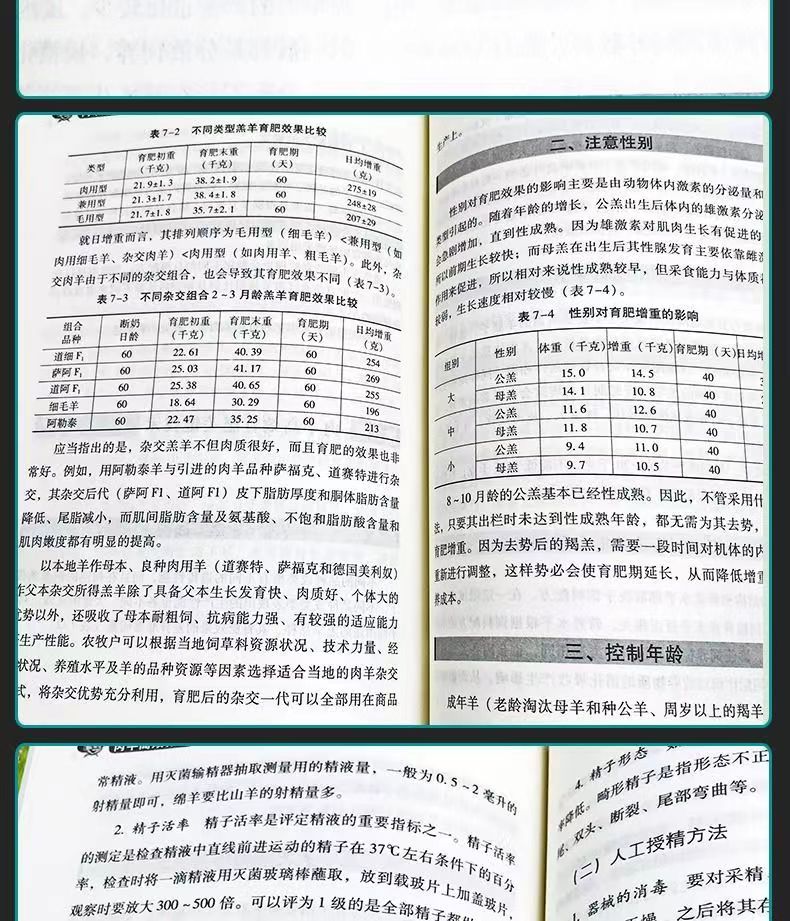 表7-2 不同类型羔羊育肥效果比较
类型 育肥初重(千克) 育肥末重(千克) 育肥期(天) 日均增重(克)
肉用型 21.9±1.3 38.2±1.9 60 275±19
兼用型 21.3±1.7 38.4±1.8 60 248±28
毛用型 21.7±1.8 35.7±2.1 60 207±29
就日增重而言,其排列顺序为毛用型(细毛羊)<兼用型(如
肉用细毛羊、杂交肉羊)<肉用型(如肉用羊、粗毛羊)。此外,杂
交肉羊由于不同的杂交组合,也会导致其育肥效果不同(表7-3)。
表7-3 不同杂交组合2~3月龄羔羊育肥效果比较
组合品种 断奶日龄 育肥初重(千克) 育肥末重(千克) 育肥期(天) 日均增重(克)
道细F₁ 60 22.61 40.39 60 254
萨阿F₁ 60 25.03 41.17 60 269
道阿F₁ 60 25.38 40.65 60 255
细毛羊 60 18.64 30.29 60 196
阿勒泰 60 22.47 35.25 60 213
应当指出的是,杂交羔羊不但肉质很好,而且育肥的效果也非
常好。例如,用阿勒泰羊与引进的肉羊品种萨福克、道赛特进行杂
交,其杂交后代(萨阿F1、道阿F1)皮下脂肪厚度和胴体脂肪含量
降低、尾脂减小,而肌间脂肪含量及氨基酸、不饱和脂肪酸含量和
肌肉嫩度都有明显的提高。
以本地羊作母本、良种肉用羊(道赛特、萨福克和德国美利奴)
作父本杂交所得羔羊除了具备父本生长发育快、肉质好、个体大的
优势以外,还吸收了母本耐粗饲、抗病能力强、有较强的适应能力
生产性能。农牧户可以根据当地饲草料资源状况、技术力量、经
状况、养殖水平及羊的品种资源等因素选择适合当地的肉羊杂交
式,将杂交优势充分利用,育肥后的杂交一代可以全部用在商品
生产上。
二、注意性别
性别对育肥效果的影响主要是由动物体内激素的分泌量和
类型引起的。随着年龄的增长,公羔出生后体内的雄激素分泌
会急剧增加,直到性成熟。因为雄激素对肌肉生长有促进的
所以前期生长较快;而母羔在出生后其性腺发育主要依靠雌激
作用来促进,所以相对来说性成熟较早,但采食能力与体质
较弱,生长速度相对较慢(表7-4)。
表7-4 性别对育肥增重的影响
组别 性别 体重(千克) 增重(千克) 育肥期(天) 日均增
大 公羔 15.0 14.5 40
母羔 14.1 10.8 40
中 公羔 11.6 12.6 40
母羔 11.8 10.7 40
小 公羔 9.4 11.0 40
母羔 9.7 10.5 40
8~10月龄的公羔基本已经性成熟。因此,不管采用什
法,只要其出栏时未达到性成熟年龄,都无需为其去势,
育肥增重。因为去势后的羯羔,需要一段时间对机体的内
重新进行调整,这样势必会使育肥期延长,从而降低增重
养成本。
三、控制年龄
成年羊(老龄淘汰母羊和种公羊、周岁以上的羯羊
常精液。用灭菌输精器抽取测量用的精液量,一般为0.5~2毫升的
射精量即可,绵羊要比山羊的射精量多。
2. 精子活率 精子活率是评定精液的重要指标之一。精子活率
的测定是检查精液中直线前进运动的精子在37℃左右条件下的百分
率,检查时将一滴精液用灭菌玻璃棒蘸取,放到载玻片上加盖玻片,
观察时要放大300~500倍。可以评为1级的是全部精子都
4. 精子形态
率降低。畸形精子是指形态不正
尾、双头、断裂、尾部弯曲等。
(二)人工授精方法
1. 器械的消毒 要对采精
之后将其